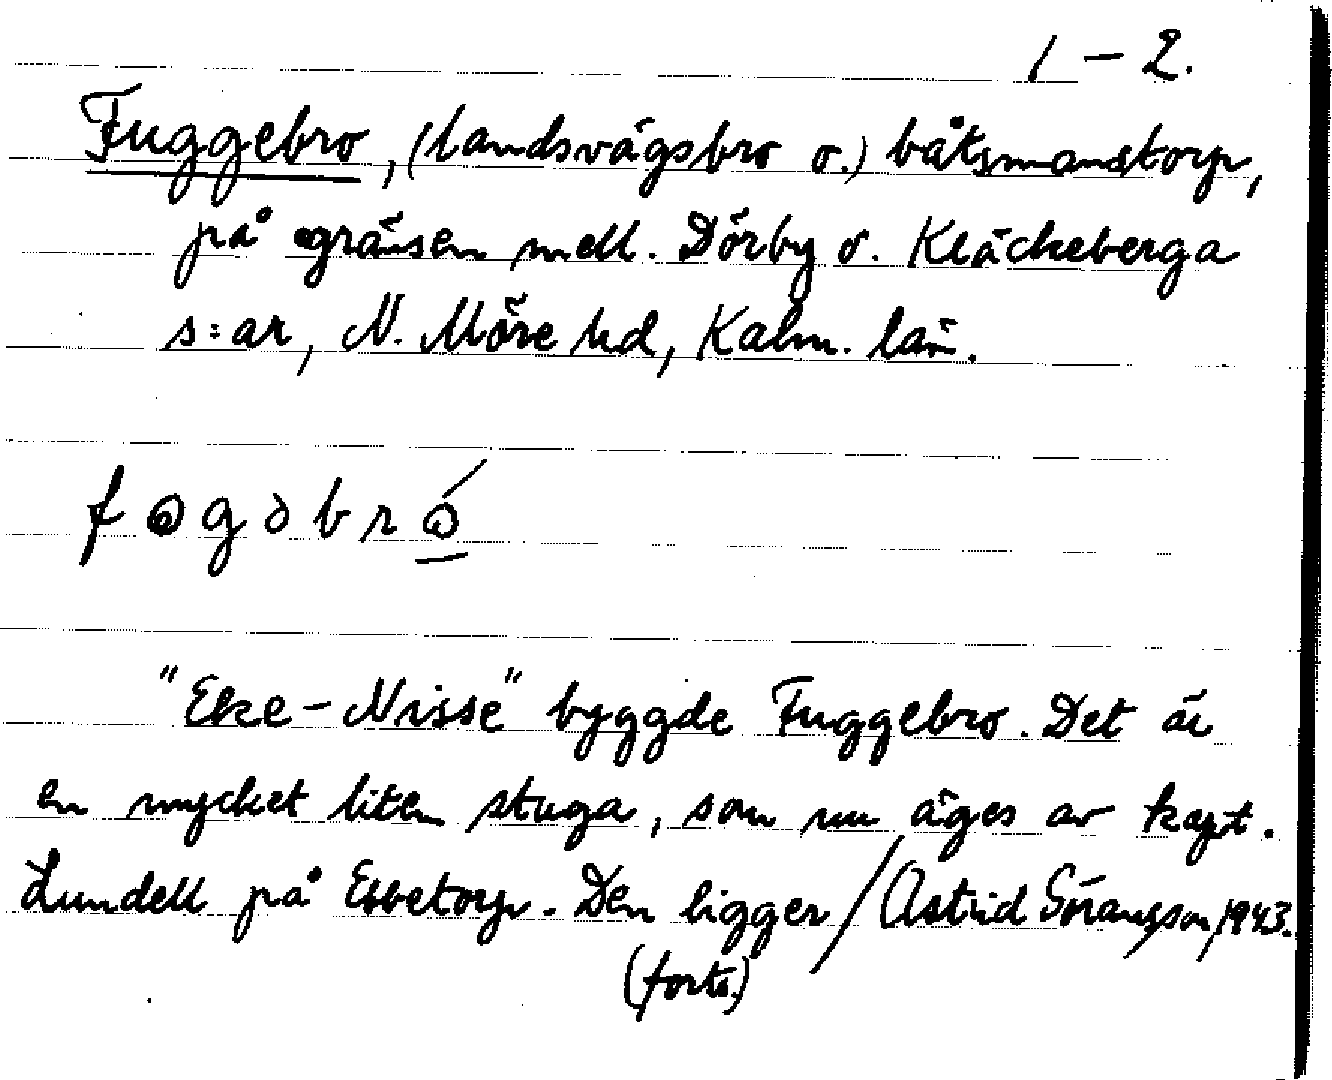 1 – 2.
Fuggebro, (landsvägsbro o.) båtsmanstorp,
på gränsen mell. Dörby o. Kläckeberga
s:ar, N. Möre hd, Kalm. län.
"Eke-Nisse" byggde Fuggebro. Det är
en mycket liten stuga, som nu äges av kapt.
Lundell på Ebbetorp. Den ligger / Astrid 1943.
(forts.)